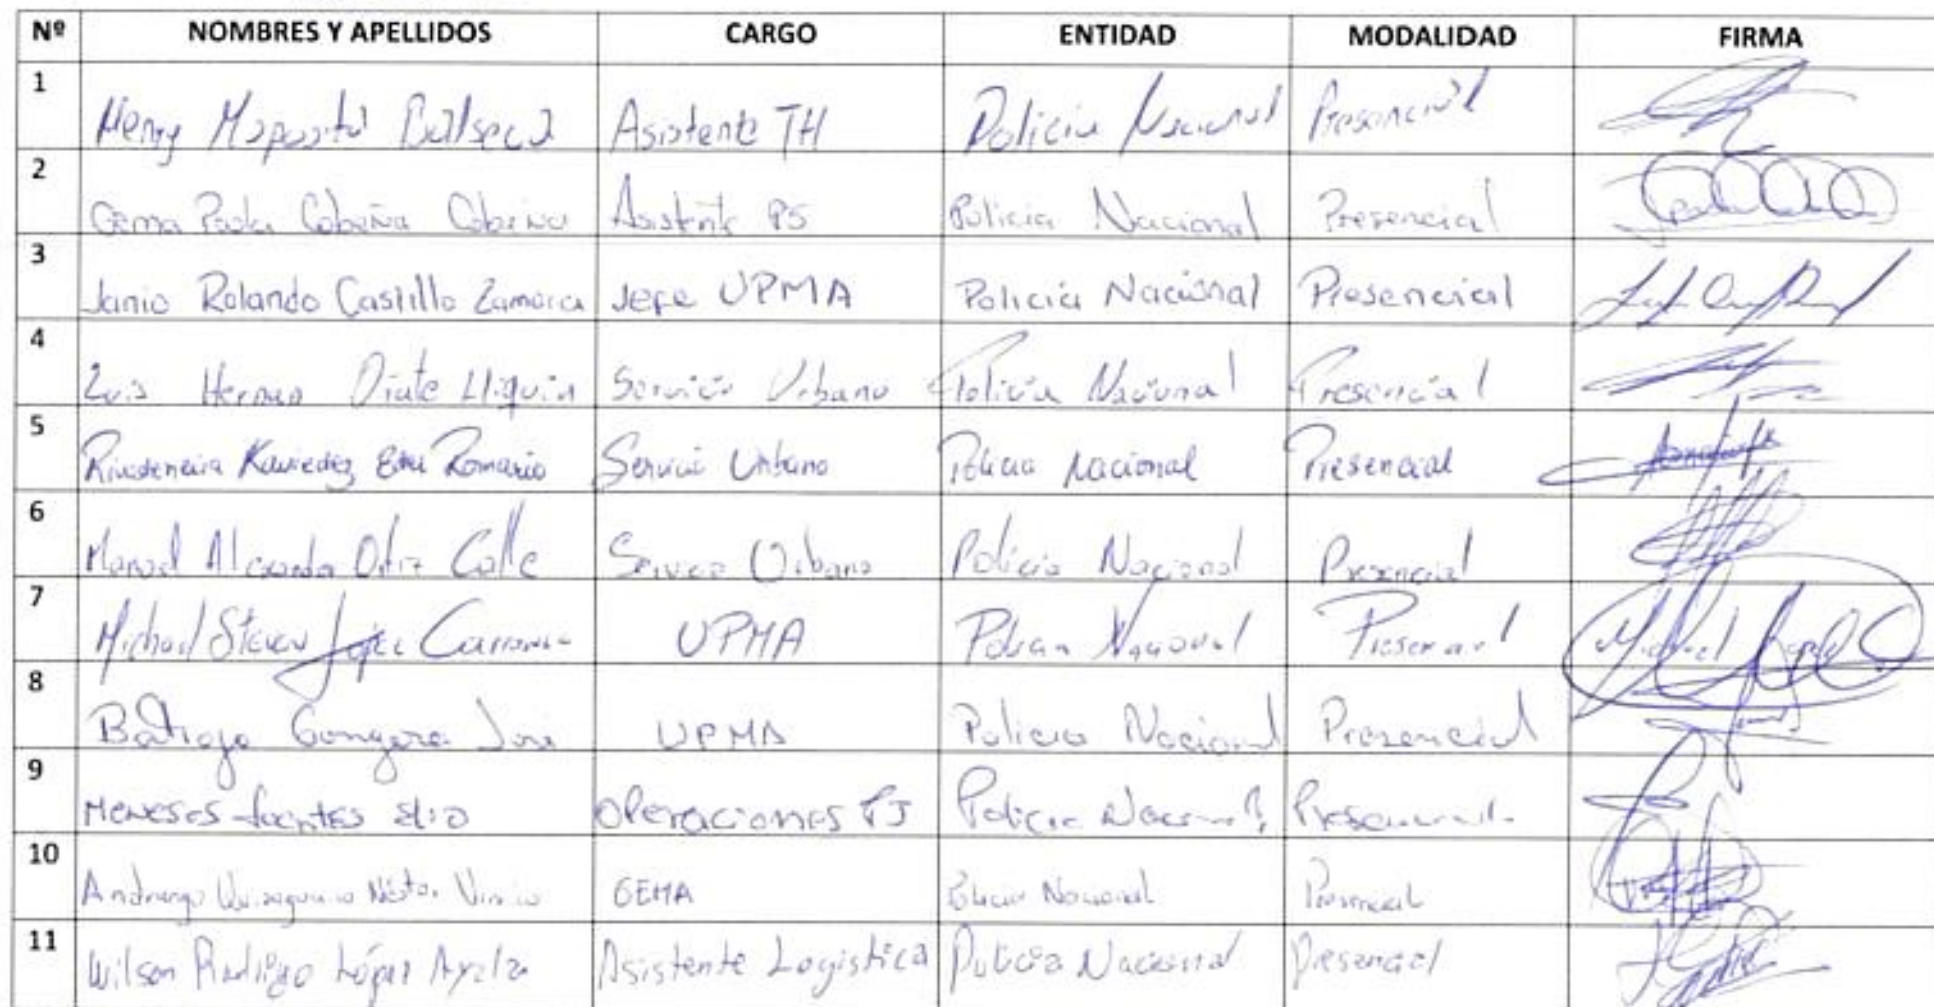 Nº NOMBRES Y APELLIDOS CARGO ENTIDAD MODALIDAD FIRMA
1 Henry Balseca Asistente TH Policia Nacional Presencial
2 Gema Paola Cobeña Cobeña Asistente PS Policia Nacional Presencial
3 Janio Rolando Castillo Zamora Jefe UPMA Policia Nacional Presencial
4 Luis Hernan Oñate Lliquin Servicio Urbano Policia Nacional Presencial
5 Rivadeneira Kaviedez Romario Servicio Urbano Policia Nacional Presencial
6 Manuel Alexander Ortiz Calle Servicio Urbano Policia Nacional Presencial
7 Michael Steven López UPMA Policia Nacional Presencial
8 Batioja Gongora José UPMA Policia Nacional Presencial
9 Meneses fuentes Operaciones PJ Policia Nacional Presencial
10 Andrango Néstor GEMA Policia Nacional Presencial
11 Wilson Rodrigo López Ayala Asistente Logistica Policia Nacional Presencial